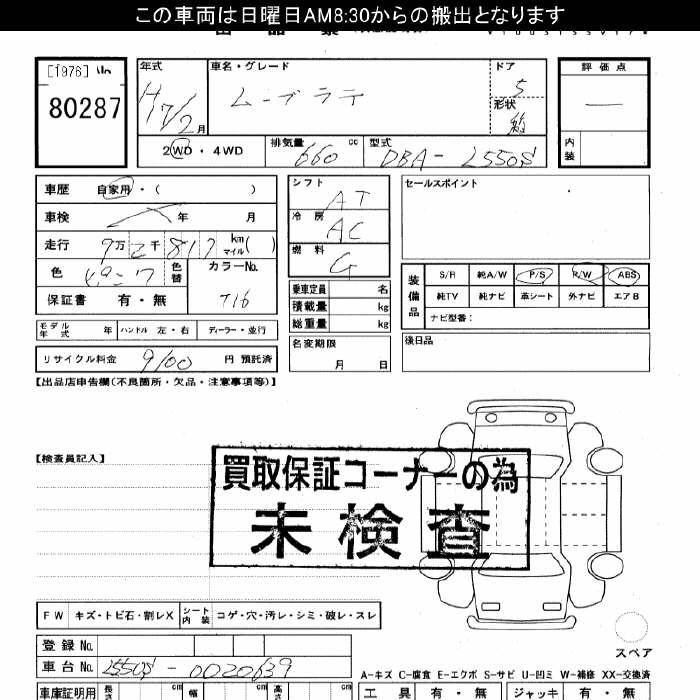 この車両は日曜日AM8:30からの搬出となります
[1976]
80287
年式
H17/2月
車名・グレード
ムーブラテ
ドア
5
形状
箱
評価点
内装
2WD・4WD
排気量
660 cc
型式
DBA-L550S
車歴 自家用・( )
車検 年 月
走行 9万2千817 km マイル( )
色 ピンク 色替
カラーNo.
T16
保証書 有・無
シフト
AT
冷房
AC
燃料
G
乗車定員 名
積載量 kg
総重量 kg
名変期限
月 日
セールスポイント
装備品
S/R 純A/W P/S R/W ABS
純TV 純ナビ 革シート 外ナビ エアB
ナビ型番:
後日品
モデル年式 年 ハンドル 左・右 ディーラー・並行
リサイクル料金 9100 円 預託済
【出品店申告欄(不良箇所・欠品・注意事項等)】
【検査員記入】
買取保証コーナーの為
未検査
FW キズ・トビ石・割レX シート内装 コゲ・穴・汚レ・シミ・破レ・スレ
スペア
登録No.
車台No. L550S-0020639
A-キズ C-腐食 E-エクボ S-サビ U-凹ミ W-補修 XX-交換済
車庫証明用 長さ cm 幅 cm 高さ cm
工具 有・無 ジャッキ 有・無